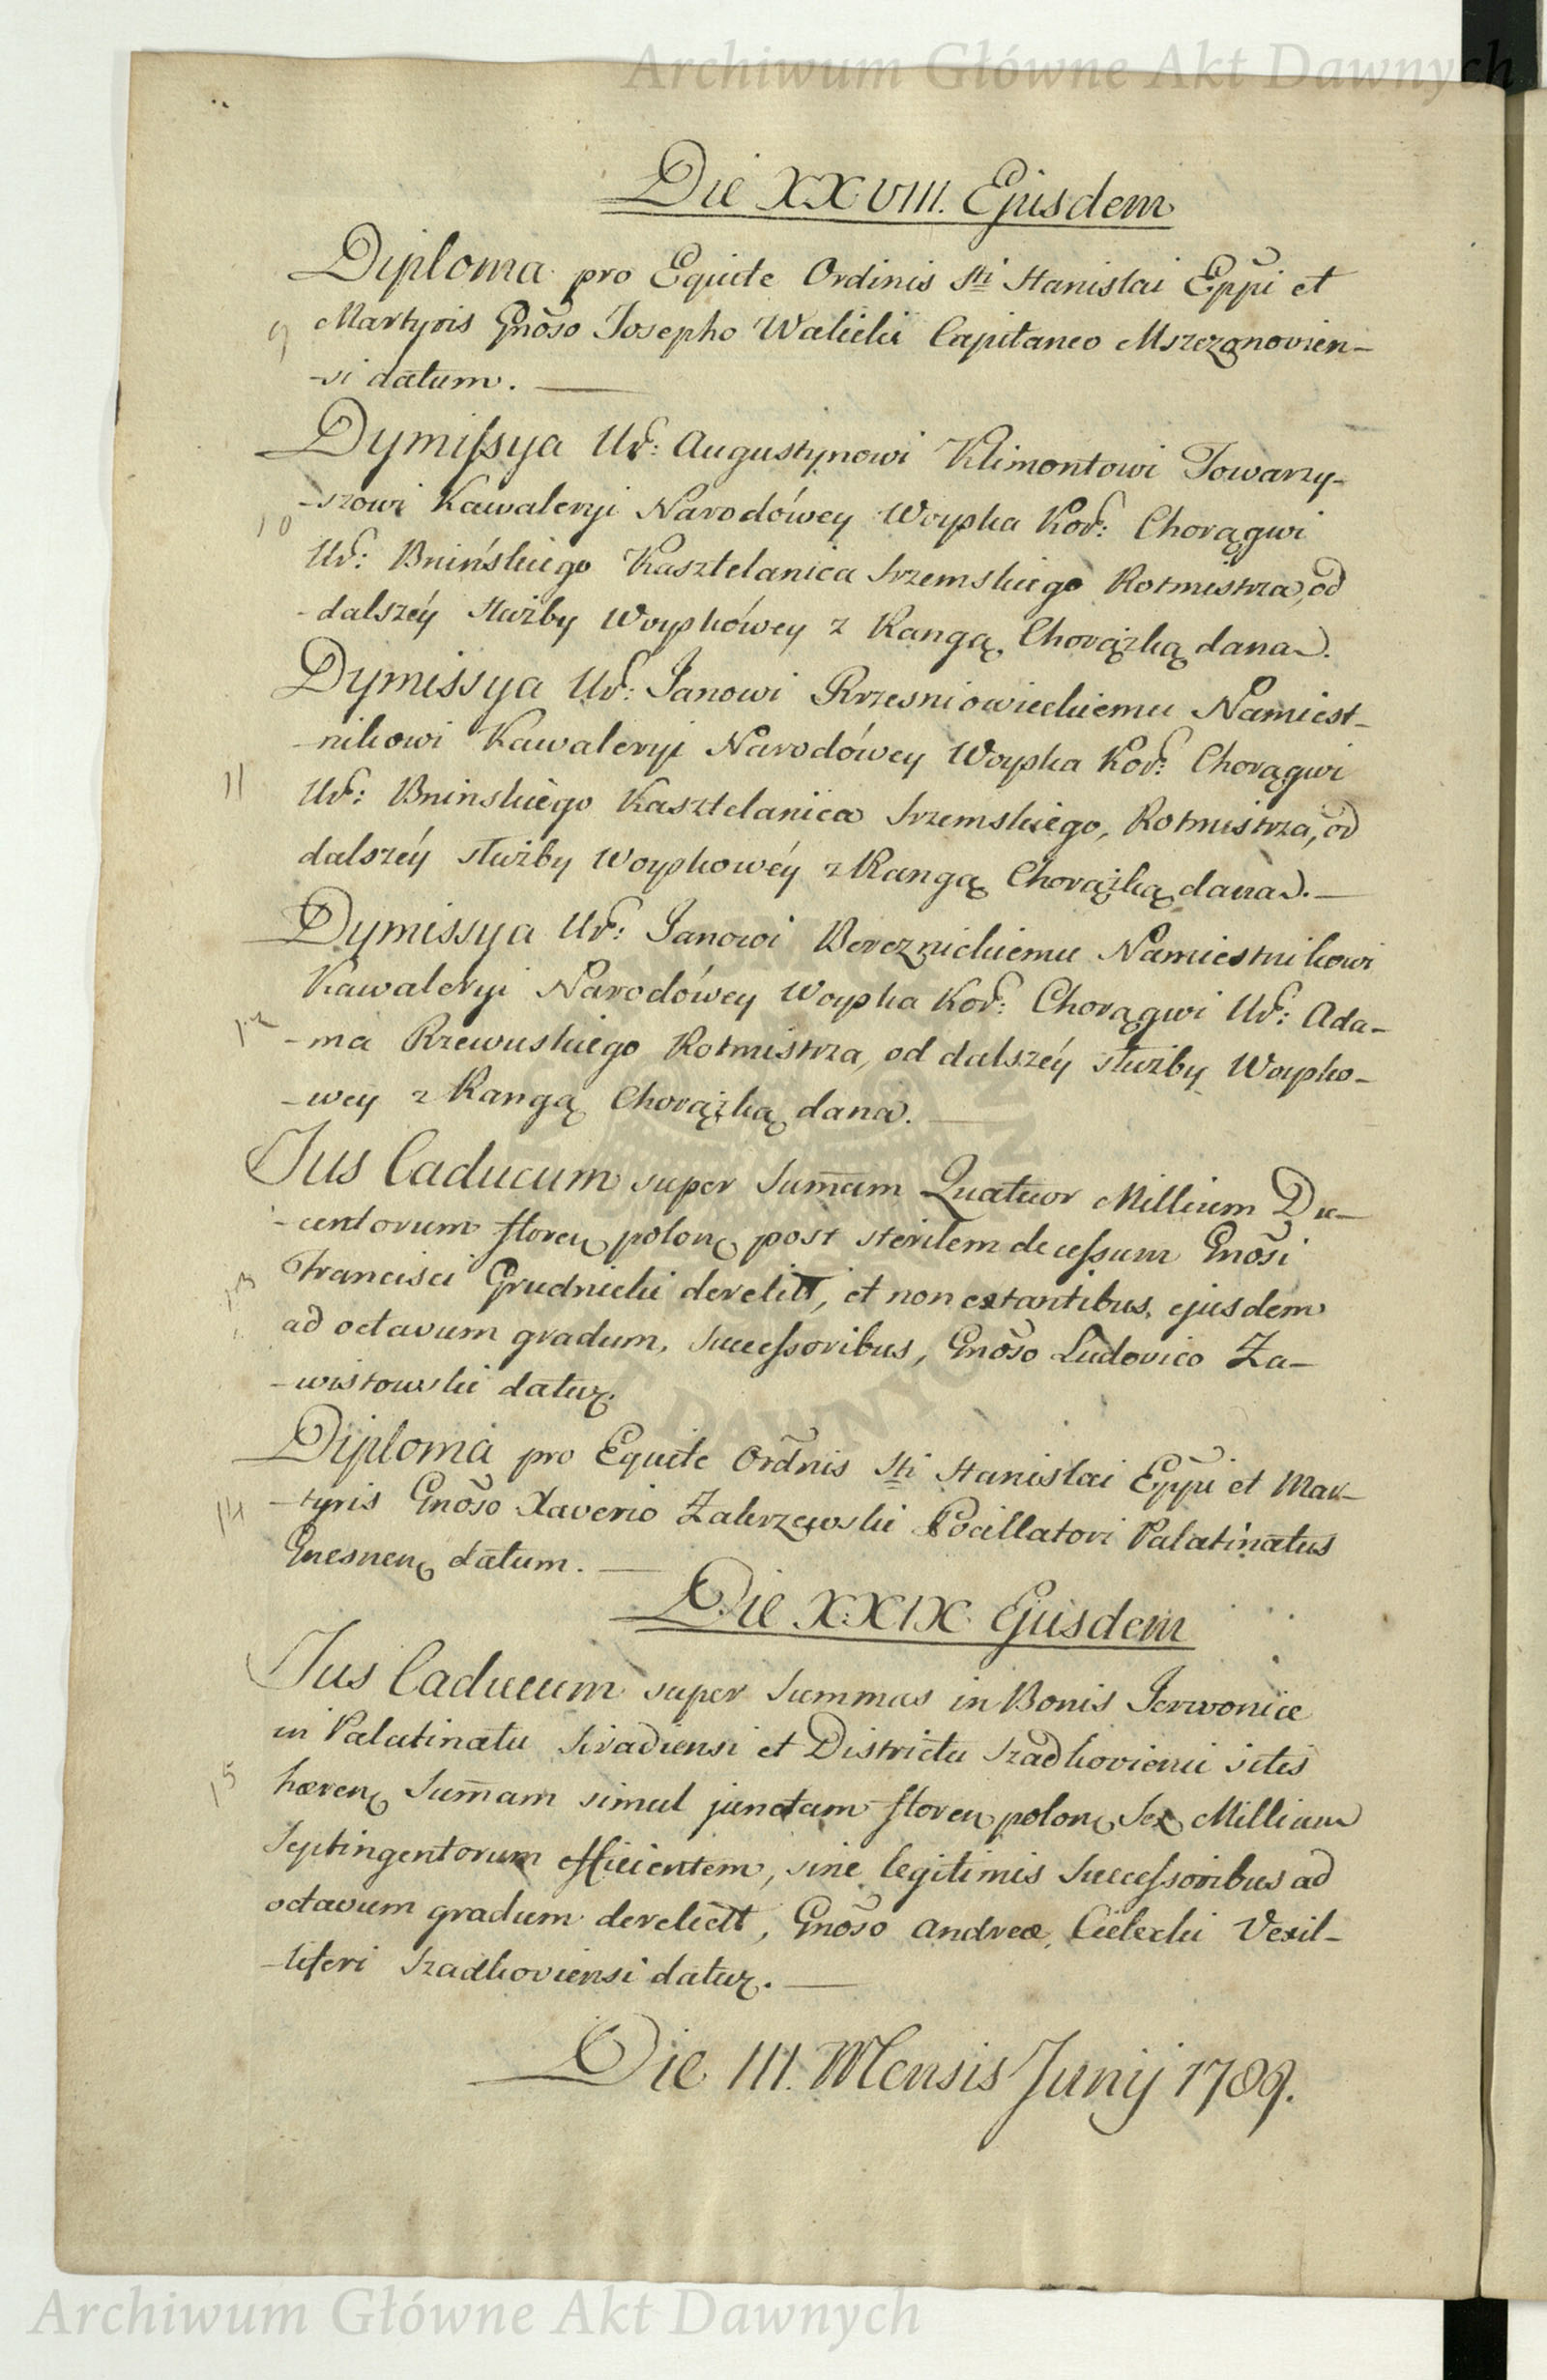 Archiwum Główne Akt Dawnych
Die XXVIII. Ejusdem
Diploma pro Equite Ordinis Sti Stanislai Eppi et
9 Martyris Gnoso Josepho Walicki Capitaneo Mszczonovien-
-si datum.
Dymissya Ur: Augustynowi Klimontowi Towarzy-
10 -szowi Kawaleryi Narodówey Woyska Kor: Chorągwi
Ur: Bnińskiego Kasztelanica Srzemskiego Rotmistrza, od
-dalszéy służby Woyskówey z Rangą Chorążką dana.
Dymissya Ur: Janowi Rzesniowieckiemu Namiest-
-nikowi Kawaleryi Narodówey Woyska Kor: Chorągwi
11 Ur: Bninskiego Kasztelanica Srzemskiego, Rotmistrza, od
dalszéy służby Woyskowéy z Rangą Chorążką dana.
Dymissya Ur: Janowi Bereznickiemu Namiestnikowi
Kawaleryi Narodówey Woyska Kor: Chorągwi Ur: Ada-
12 -ma Rzewuskiego Rotmistrza, od dalszéy służby Woysko-
-wey z Rangą Chorążką dana.
Jus Caducum super Sumam Quatuor Millium Du-
-centorum floren polon post sterilem decessum Gnosi
13 Francisci Grudnicki derelitt, et non extantibus ejusdem
ad octavum gradum, Successoribus, Gnoso Ludovico Za-
-wistowski datur.
Diploma pro Equite Ordnis Sti Stanislai Eppi et Mar-
14 -tyris Gnoso Xaverio Zakrzewski Pocillatori Palatinatus
Gnesnen datum.
Die XXIX Ejusdem
Jus Caducum super Summas in Bonis Jerwonice
in Palatinatu Siradiensi et Districtu Szadkoviensi sitis
15 hæren Sumam simul junctam floren polon Sex Millium
Septingentorum efficientem, sine legitimis Successoribus ad
octavum gradum derelictt, Gnoso Andreæ Cielecki Vexil-
-liferi Szadkoviensi datur.
Die III. Mensis Junij 1789.
Archiwum Główne Akt Dawnych